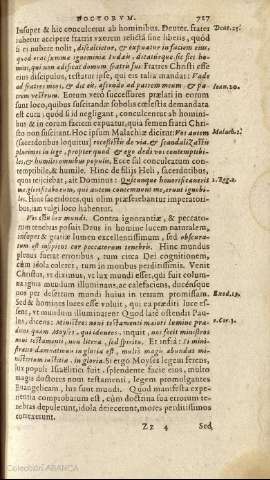 DOCTORVM. 727
Insuper & hic conculcetur ab hominibus. Deuter. frater Deut. 25.
iubetur accipere fratris vxorem relictã sine liberis, quòd
si ei nubere nolit, discalcietur, & expuatur in faciem eius,
quod erat summa ignominia Iudæis, dicatúrque: sic fiet ho-
mini, qui non ædificat domum fratris sui. Fratres Christi esse
eius discipulos, testatur ipse, qui eis talia mandat: Vade
ad fratres meos, & dic eis, ascendo ad patrem meum & pa- Ioan. 20.
trem vestrum. Eorum verò successores prælati in eorum
sunt loco, quibus suscitandæ sobolis cœlestis demandata
est cura: quod si id negligant, conculcentur ab homini-
bus & in eorum faciem expuatur, qui semen fratri Chri-
sto non suscitant. Hoc ipsum Malachiæ dicitur: Vos autem Malach. 2.
(sacerdotibus loquitur) recessistis de via, & scandalizastis
plurimos in lege, propter quod & ego dedi vos contemptibi-
les, & humiles omnibus populis. Ecce sal conculcatum con-
temptibile, & humile. Hinc de filijs Heli, sacerdotibus,
quos rejiciebat, ait Dominus: Quicunque honorificauerit 1. Reg. 2.
me, glorificabo eum, qui autem contemnunt me, erunt ignobi-
les. Hinc sacerdotes, qui olim præferebantur imperatori-
bus, iam vlgò loco habentur.
Vos estis lux mundi. Contra ignorantiæ, & peccato-
rum tenebras posuit Deus in homine lucem naturalem,
insuper & gratiæ lumen excellentissimum, sed obscura-
tum est insipiens cor peccatorum tenebris. Hinc mundus
plenus fuerat erroribus, tum circa Dei cognitionem,
cùm idola coleret, tum in moribus perditissimis. Venit
Christus, vt diximus, vt lux mundi esset, qui fuit colum-
na ignea mundum illuminans, ac calefaciens, ducénsque
nos per desertum mundi huius in terram promissam. Exod. 13.
Sed & homines luces esse voluit, qui ea præditi luce es-
sent, vt mundum illuminarent: Quod latè ostendit Pau-
lus, dicens: Ministros noui testamenti maiori lumine præ- 2. Cor. 3.
ditos quàm Moyses, qui idoneos, inquit, nos fecit ministros
noui testamenti, non litera, sed spiritu. Et infra: Si mini-
stratio damnationis in gloria est, multò magis abundat mi-
nisterium iustitiæ in gloria. Si ergo Moyses legem ferens,
lux populi Israëlitici fuit, splendente facie eius, multo
magis doctores noui testamenti, legem promulgantes
Euangelicam, lux sunt mundi. Quod manifesta expe-
rientia comprobatum est, cùm doctrina sua errorum te-
nebras depulerunt, idola deiecerunt, mores perditissimos
correxerunt.
Zz 4 Sed,
Colección ABANCA